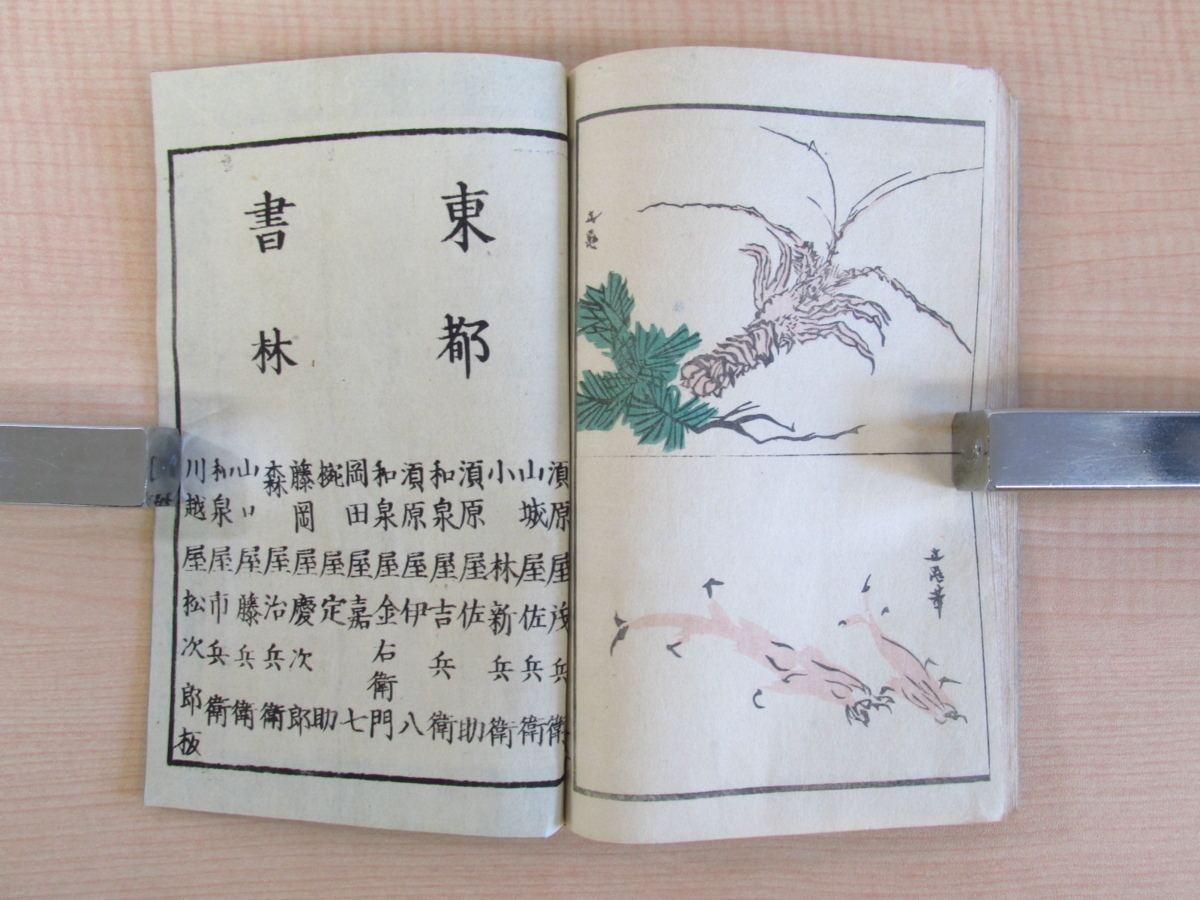 東都
書林
須原屋茂兵衛
山城屋佐兵衛
小林新兵衛
須原屋佐助
和泉屋吉兵衛
須原屋伊八
和泉屋金右衛門
岡田屋嘉七
椀屋定助
藤岡屋慶次郎
森屋治兵衛
山口屋藤兵衛
和泉屋市兵衛
川越屋松次郎板